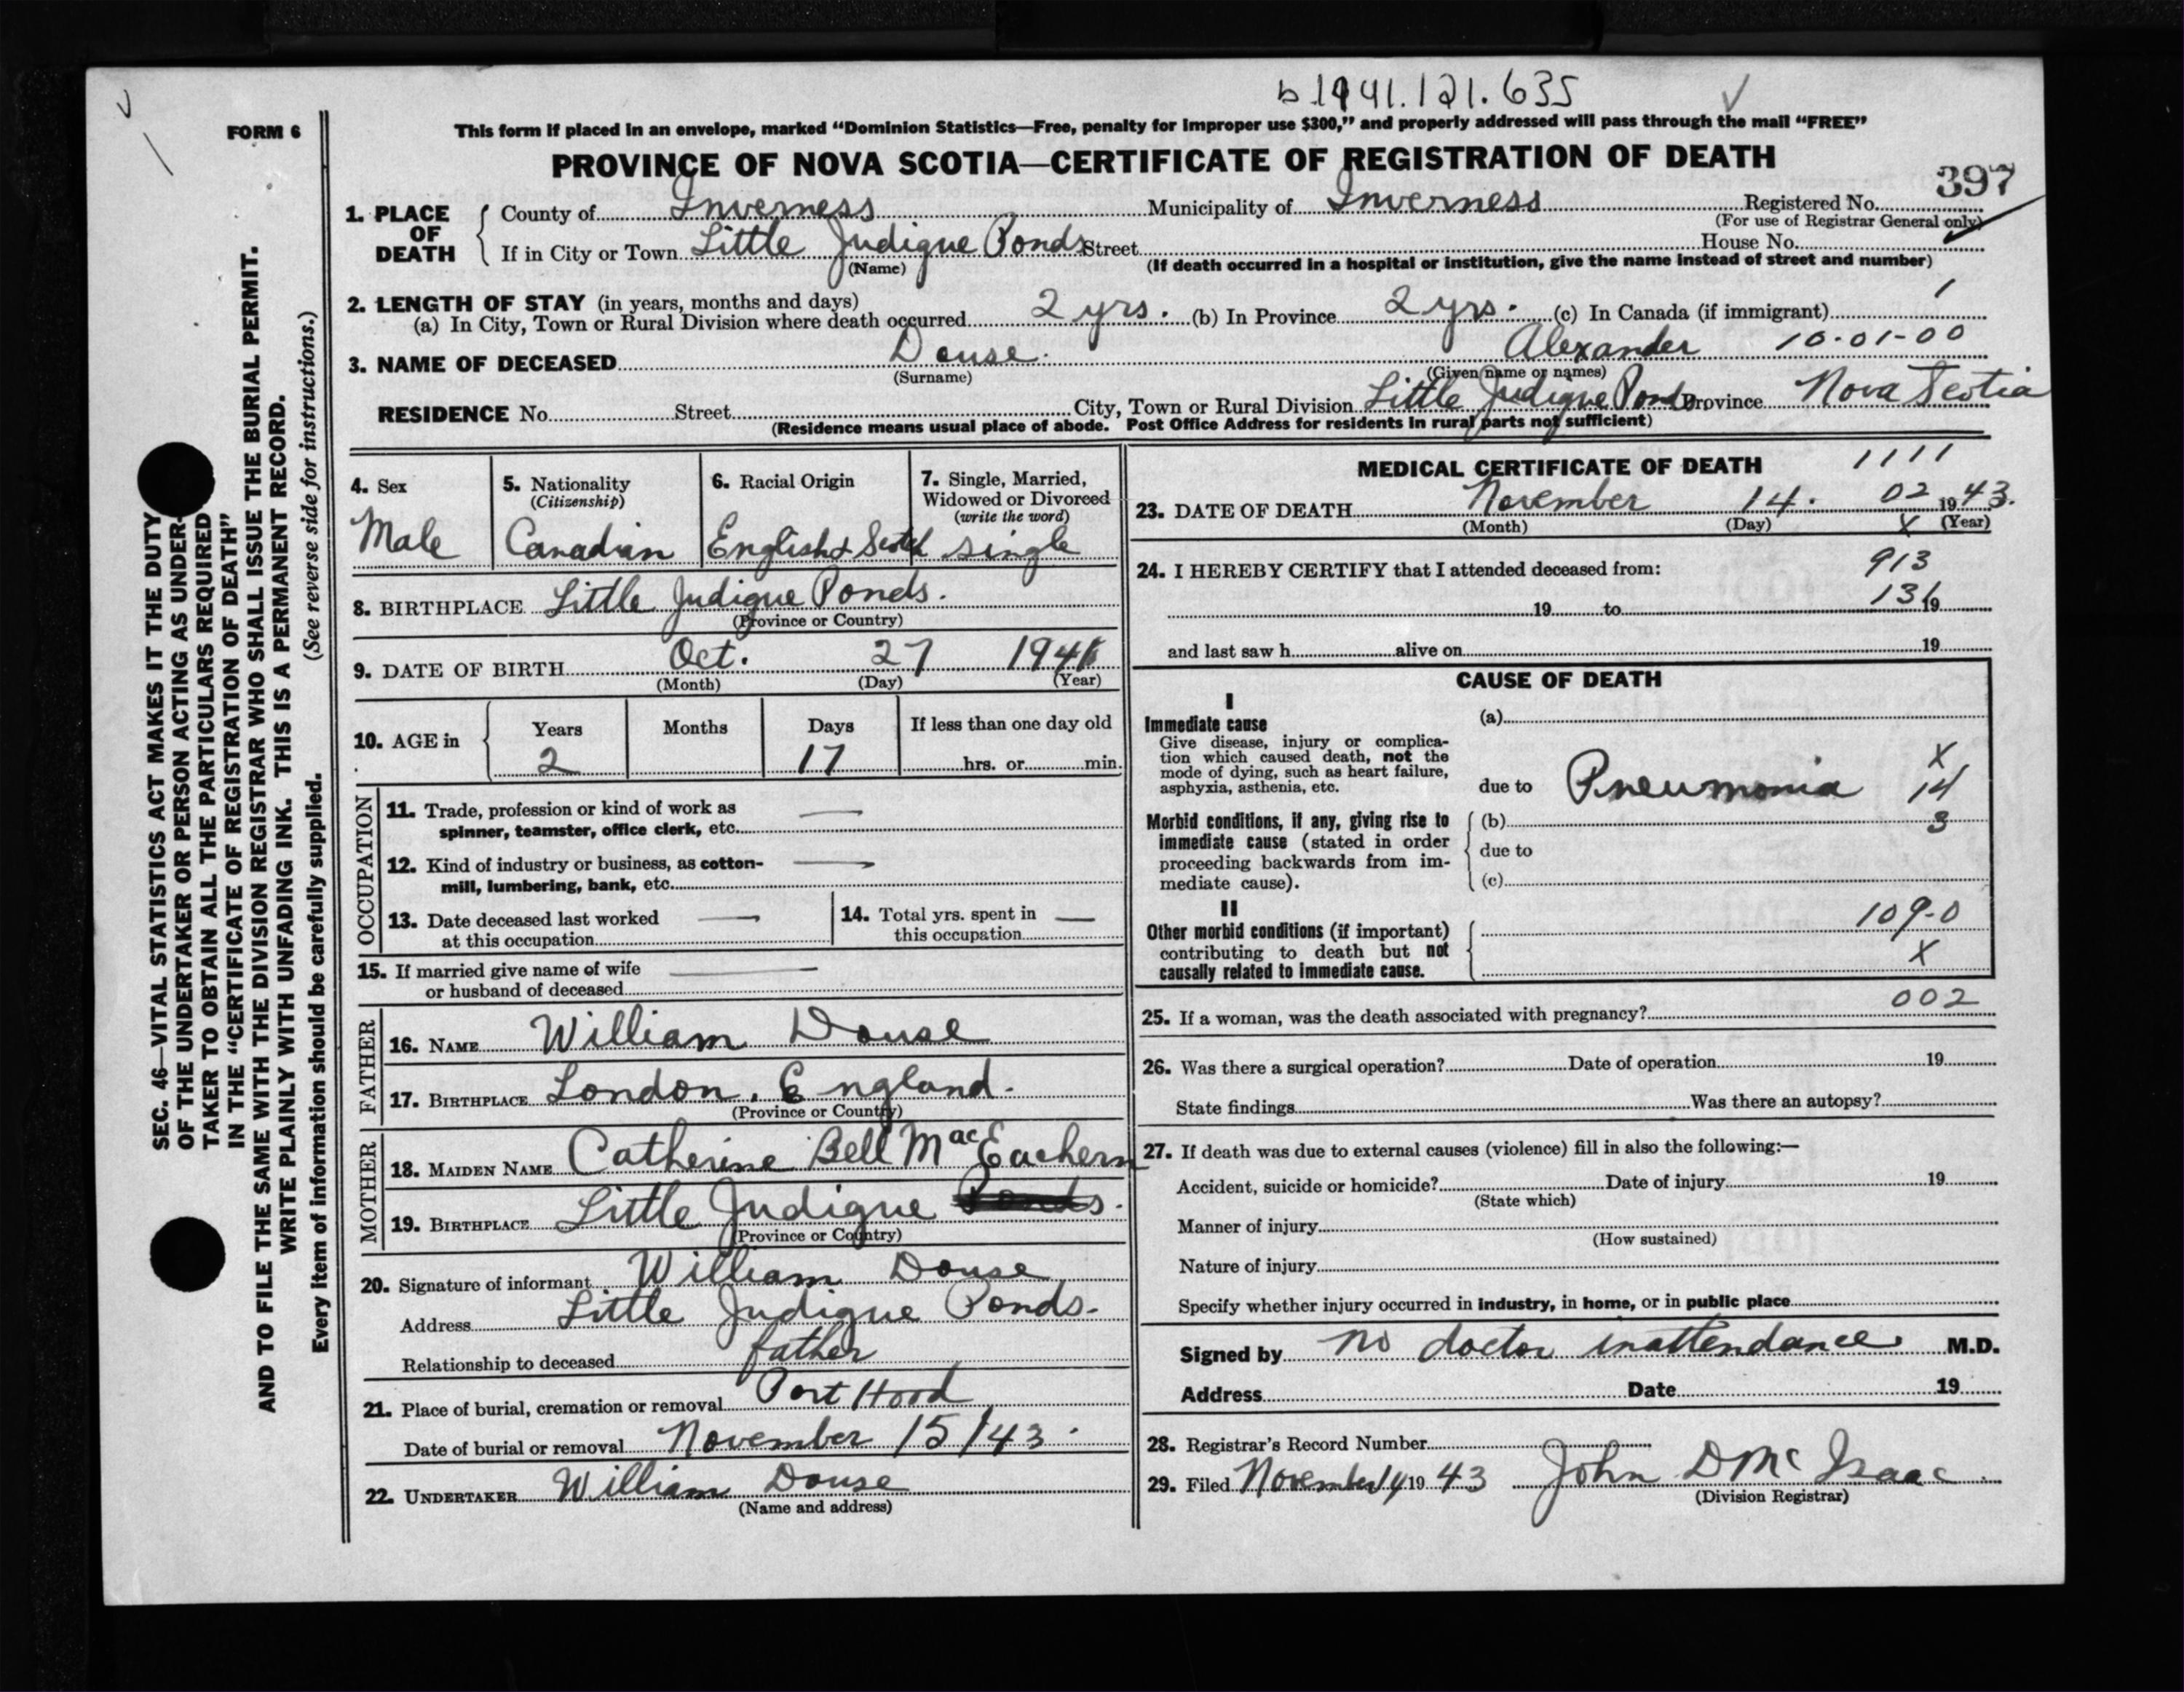 b 1941.121.635
FORM 6
This form if placed in an envelope, marked “Dominion Statistics—Free, penalty for improper use $300,” and properly addressed will pass through the mail “FREE”
PROVINCE OF NOVA SCOTIA—CERTIFICATE OF REGISTRATION OF DEATH
397
1. PLACE OF DEATH { County of Inverness Municipality of Inverness Registered No.
(For use of Registrar General only)
If in City or Town Little Judique Ponds Street House No.
(Name) (If death occurred in a hospital or institution, give the name instead of street and number)
2. LENGTH OF STAY (in years, months and days)
(a) In City, Town or Rural Division where death occurred 2 yrs. (b) In Province 2 yrs. (c) In Canada (if immigrant)
3. NAME OF DECEASED Douse. Alexander 10-01-00
(Surname) (Given name or names)
RESIDENCE No. Street City, Town or Rural Division Little Judique Ponds Province Nova Scotia
(Residence means usual place of abode. Post Office Address for residents in rural parts not sufficient)
4. Sex
Male
5. Nationality
(Citizenship)
Canadian
6. Racial Origin
English & Scotch
7. Single, Married,
Widowed or Divorced
(write the word)
single
8. BIRTHPLACE Little Judique Ponds.
(Province or Country)
9. DATE OF BIRTH Oct. 27 1941
(Month) (Day) (Year)
10. AGE in { Years Months Days If less than one day old
2 17 hrs. or min.
OCCUPATION
11. Trade, profession or kind of work as —
spinner, teamster, office clerk, etc.
12. Kind of industry or business, as cotton- —
mill, lumbering, bank, etc.
13. Date deceased last worked —
at this occupation
14. Total yrs. spent in —
this occupation
15. If married give name of wife —
or husband of deceased
FATHER
16. NAME William Douse
17. BIRTHPLACE London, England.
(Province or Country)
MOTHER
18. MAIDEN NAME Catherine Bell MacEachern
19. BIRTHPLACE Little Judique Ponds.
(Province or Country)
20. Signature of informant William Douse
Address Little Judique Ponds.
Relationship to deceased father
21. Place of burial, cremation or removal Port Hood
Date of burial or removal November 15/43.
22. UNDERTAKER William Douse
(Name and address)
MEDICAL CERTIFICATE OF DEATH 1111
23. DATE OF DEATH November 14. 02 1943.
(Month) (Day) X (Year)
24. I HEREBY CERTIFY that I attended deceased from: 913
19 to 19
and last saw h alive on 19
CAUSE OF DEATH
I
Immediate cause
Give disease, injury or complica-
tion which caused death, not the
mode of dying, such as heart failure,
asphyxia, asthenia, etc.
(a)
due to Pneumonia
X
14
3
Morbid conditions, if any, giving rise to
immediate cause (stated in order
proceeding backwards from im-
mediate cause).
(b)
due to
(c)
II
Other morbid conditions (if important)
contributing to death but not
causally related to immediate cause.
109-0
X
002
25. If a woman, was the death associated with pregnancy?
26. Was there a surgical operation? Date of operation 19
State findings Was there an autopsy?
27. If death was due to external causes (violence) fill in also the following:—
Accident, suicide or homicide? Date of injury 19
(State which)
Manner of injury
(How sustained)
Nature of injury
Specify whether injury occurred in industry, in home, or in public place
Signed by no doctor in attendance M.D.
Address Date 19
28. Registrar's Record Number
29. Filed November 14 1943 John D Mc Isaac
(Division Registrar)
SEC. 46—VITAL STATISTICS ACT MAKES IT THE DUTY
OF THE UNDERTAKER OR PERSON ACTING AS UNDER-
TAKER TO OBTAIN ALL THE PARTICULARS REQUIRED
IN THE “CERTIFICATE OF REGISTRATION OF DEATH”
AND TO FILE THE SAME WITH THE DIVISION REGISTRAR WHO SHALL ISSUE THE BURIAL PERMIT.
WRITE PLAINLY WITH UNFADING INK. THIS IS A PERMANENT RECORD.
(See reverse side for instructions.)
Every item of information should be carefully supplied.